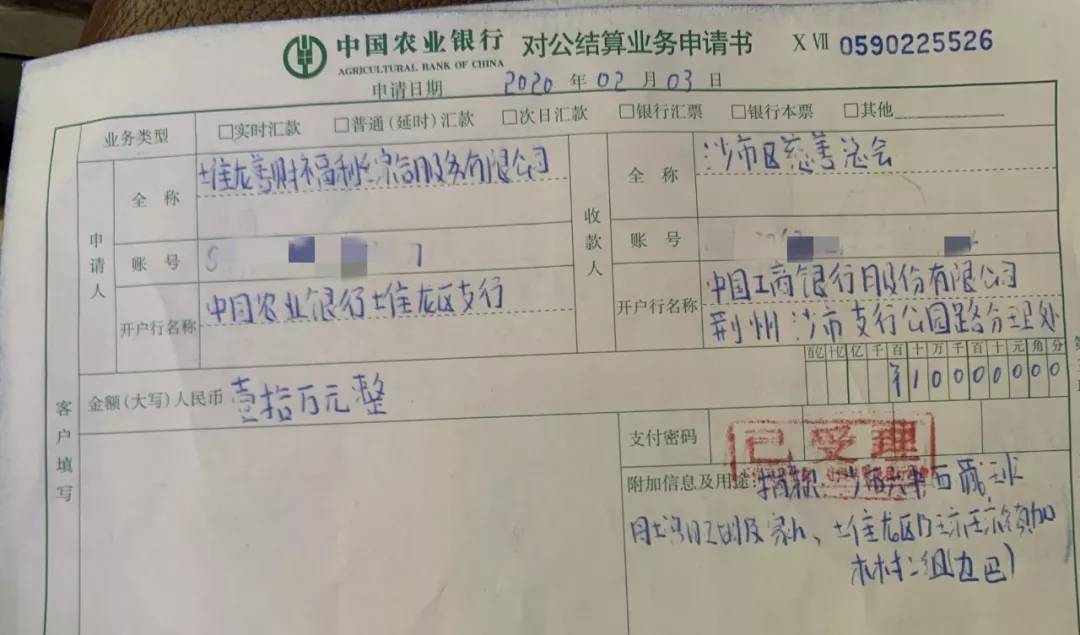 中国农业银行 对公结算业务申请书 X Ⅶ 0590225526
AGRICULTURAL BANK OF CHINA
申请日期 2020 年 02 月 03 日
业务类型 □实时汇款 □普通(延时)汇款 □次日汇款 □银行汇票 □银行本票 □其他
申请人
全 称 堆龙善财福利综合服务有限公司
账 号
开户行名称 中国农业银行堆龙区支行
收款人
全 称 沙市区慈善总会
账 号
开户行名称 中国工商银行股份有限公司
荆州沙市支行公园路分理处
百亿 十亿 亿 千 百 十 万 千 百 十 元 角 分
¥10000000
客户填写
金额(大写)人民币 壹拾万元整
支付密码
已受理
附加信息及用途: 捐款: 沙市六中西藏班
家人、堆龙区乃琼
村二组边巴)